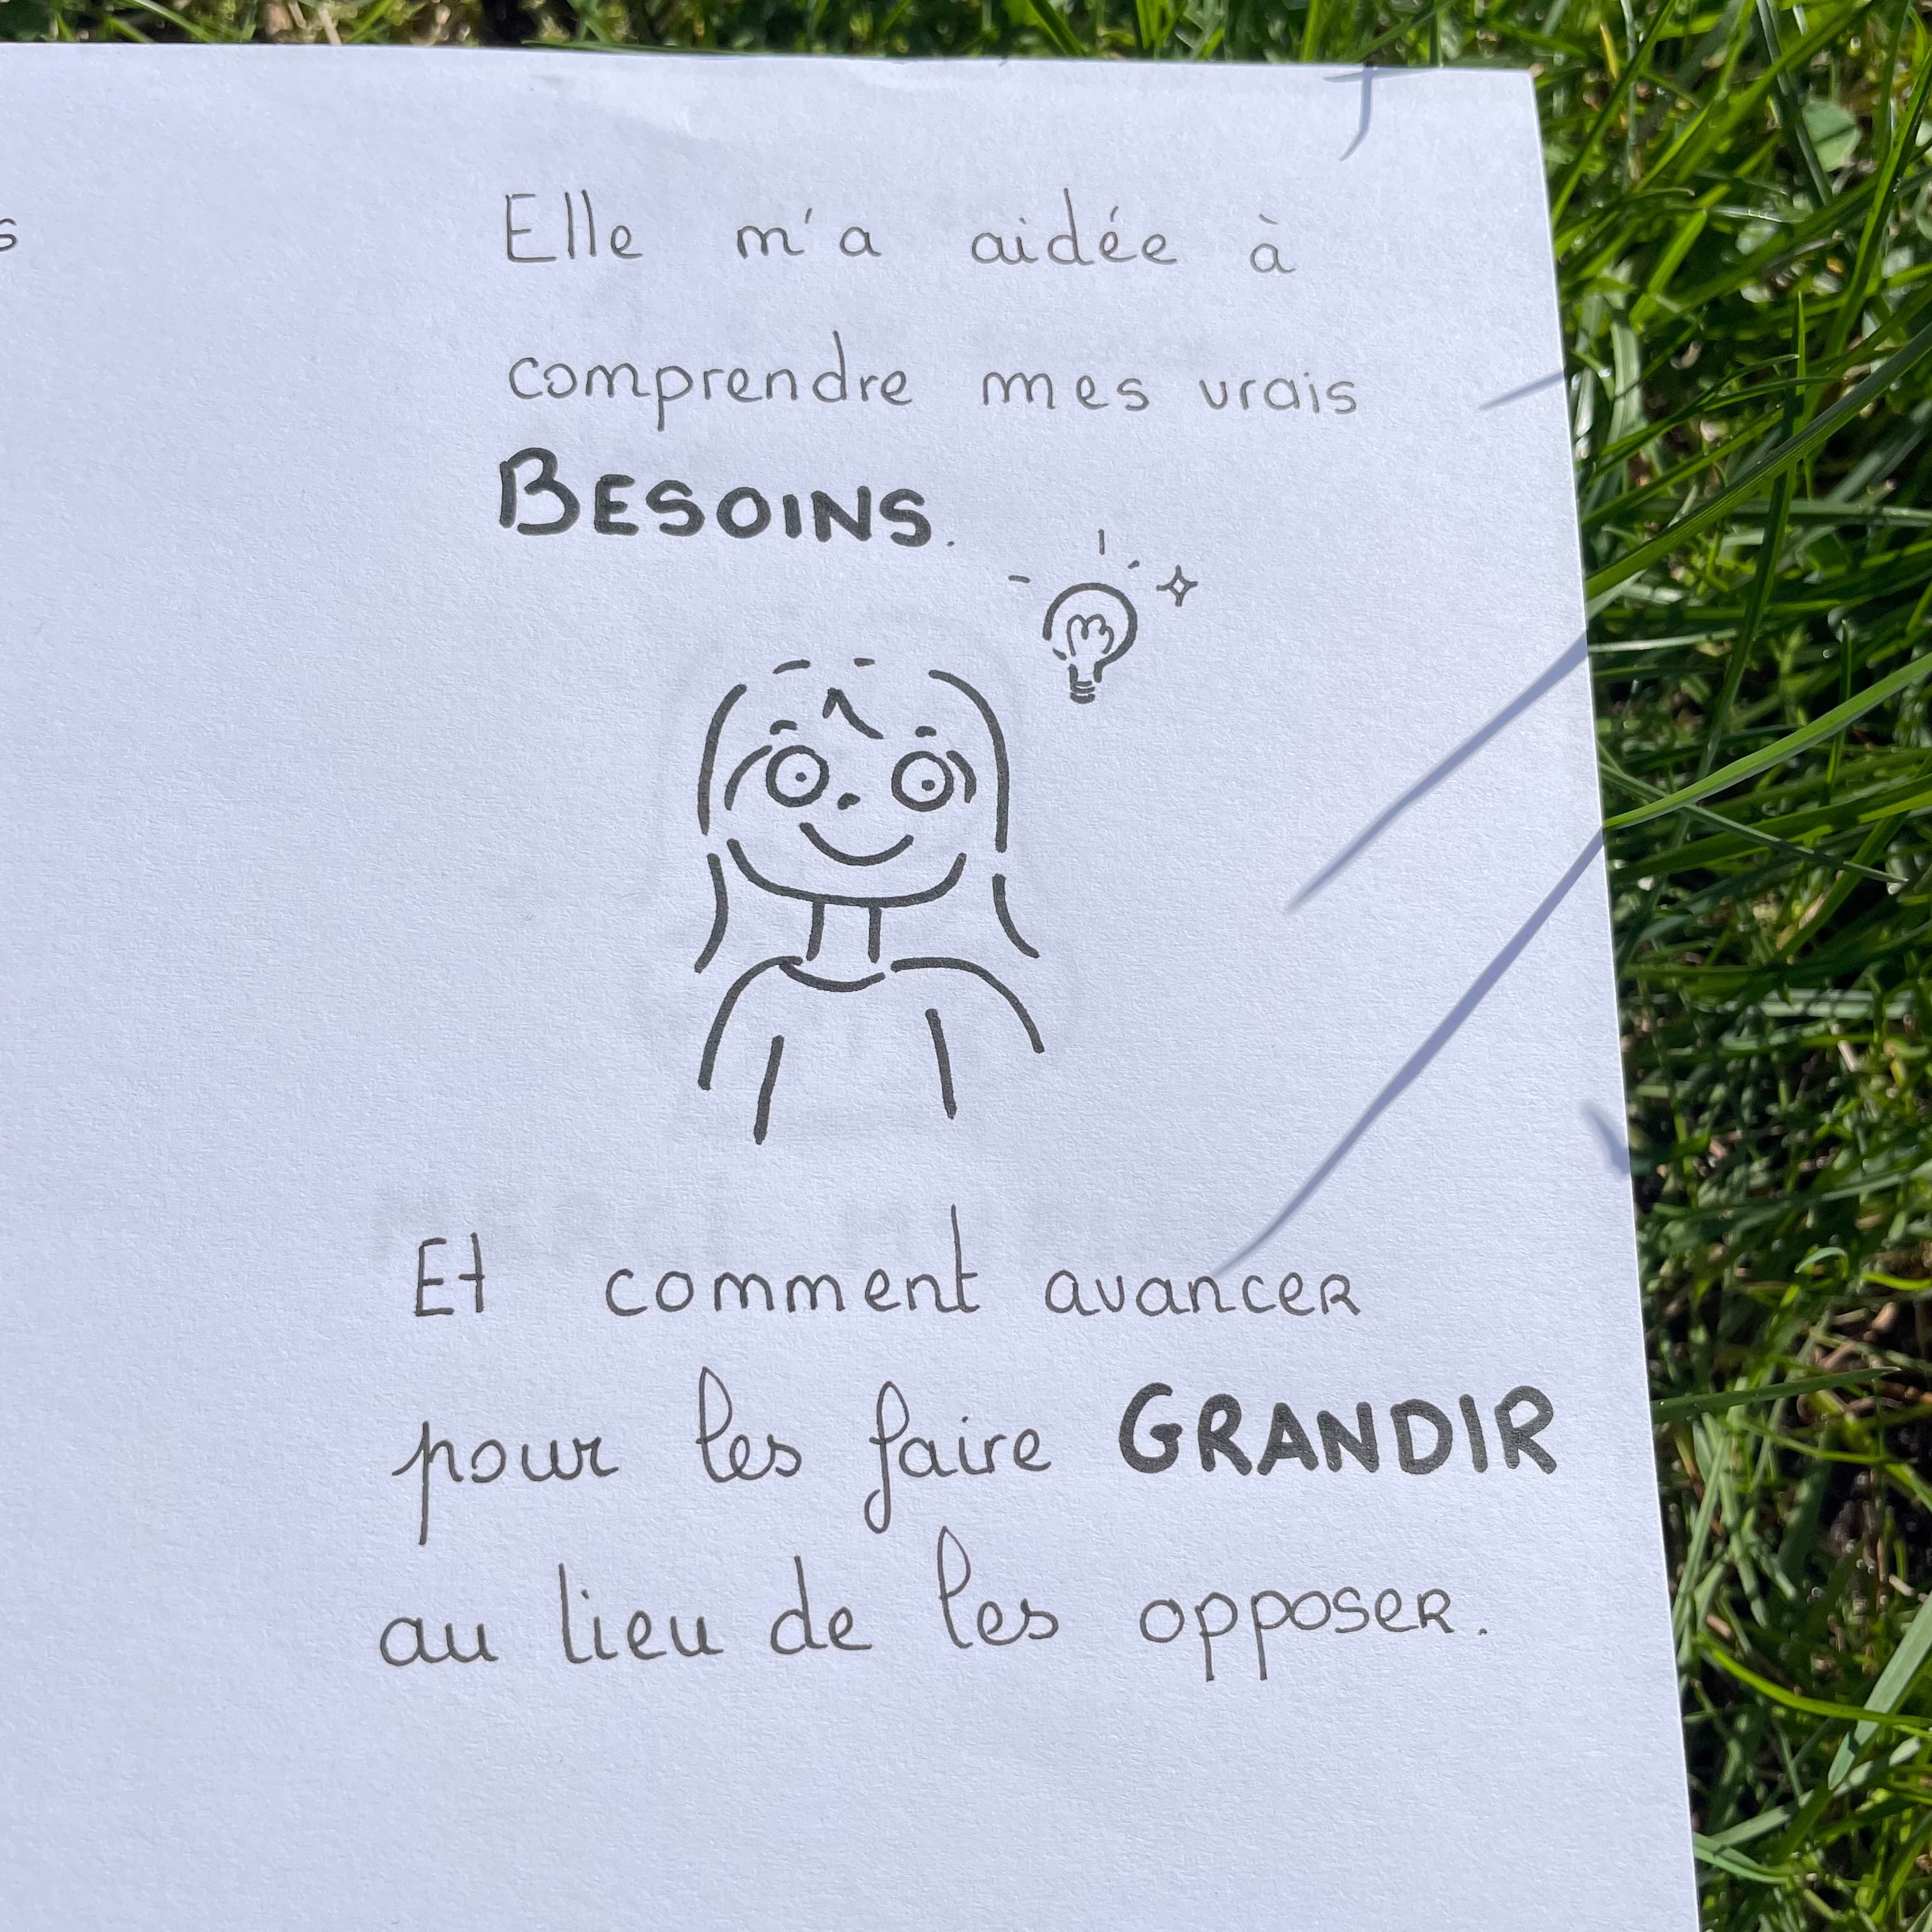 Elle m'a aidée à
comprendre mes vrais
BESOINS.
Et comment avancer
pour les faire GRANDIR
au lieu de les opposer.